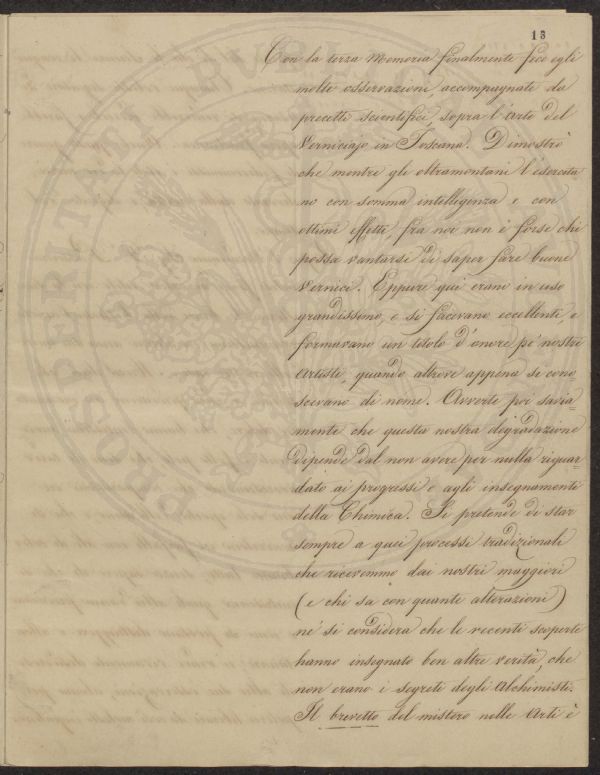 13
Con la terza Memoria finalmente fece egli
molte osservazioni, accompagnate da
precetti scientifici, sopra l'Arte del
Verniciajo in Toscana. Dimostrò
che mentre gli oltramontani l'esercita
no con somma intelligenza e con
ottimi effetti, fra noi non è forse chi
possa vantarsi di saper fare buone
Vernici. Eppure qui erano in uso
grandissimo, e si facevano eccellenti, e
formavano un titolo d'onore pe' nostri
Artisti, quando altrove appena si cono
scevano di nome. Avverte poi savia=
mente che questa nostra degradazione
dipende dal non avere per nulla riguar=
dato ai progressi e agli insegnamenti
della Chimica. Si pretende di star
sempre a quei processi tradizionali
che ricevemmo dai nostri maggiori
(e chi sa con quante alterazioni)
nè si considera che le recenti scoperte
hanno insegnato ben altre verità, che
non erano i segreti degli Alchimisti.
Il brevetto del mistero nelle Arti è
PROSPERITATI PUBLICAE